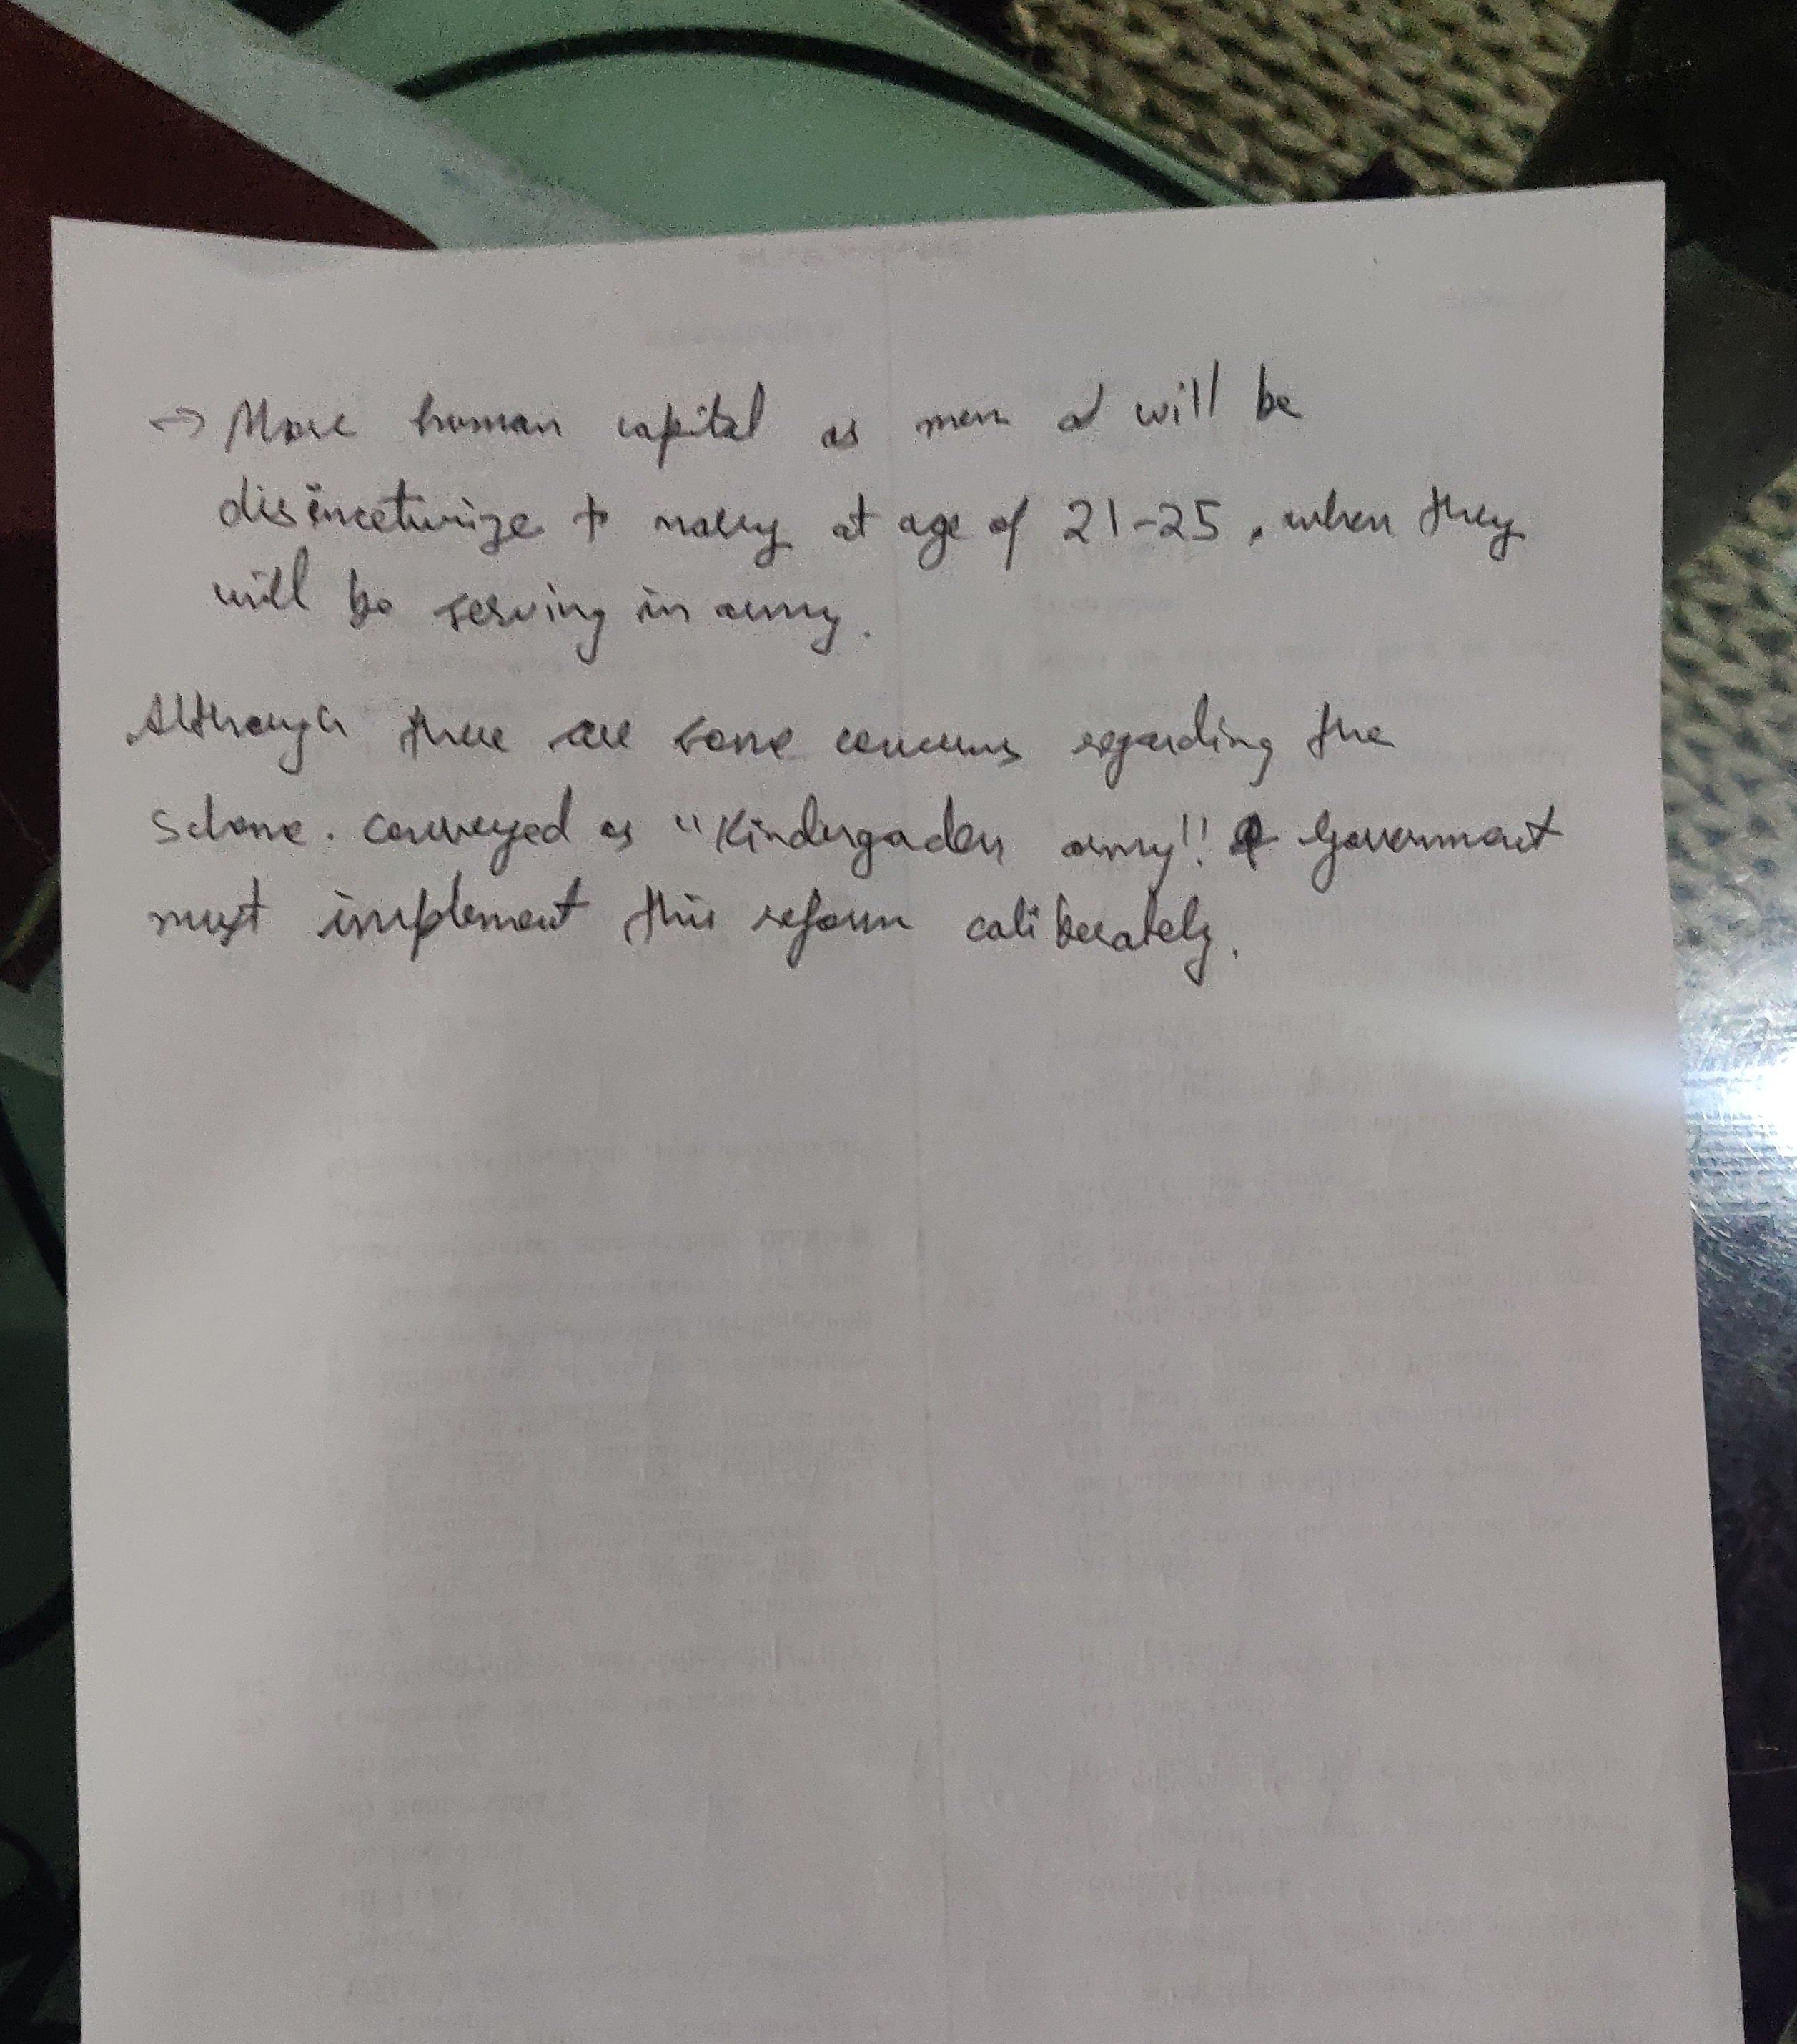 → More human capital as men will be
disincetivize to marry at age of 21-25, when they
will be serving in army.
Although there are some concerns regarding the
scheme. conveyed as "Kindergaden army!! Government
must implement this reform caliberately.